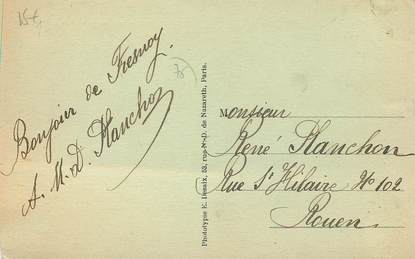 15€
Bonjour de Fresnoy.
A. M. D. Planchon
Phototypie E. Desaix, 53, rue N.-D. de Nazareth, Paris.
Monsieur
René Planchon
Rue St Hilaire No 102
Rouen